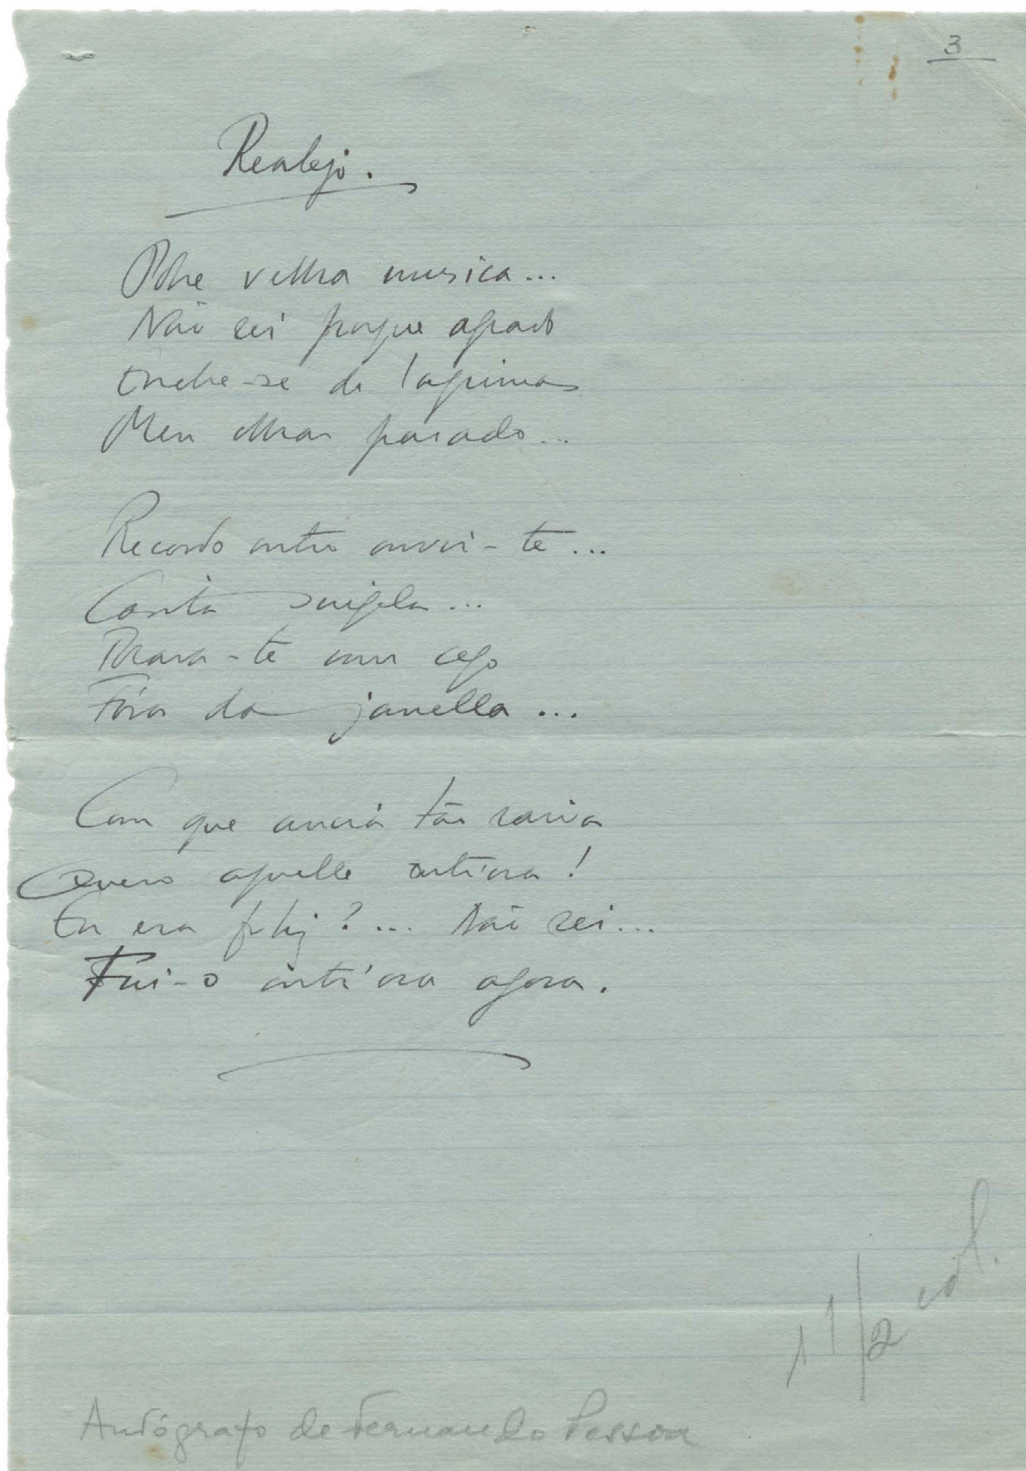 3
Realejo.
Pobre velha musica...
Não sei porque agrado
Enche-se de lagrimas
Meu olhar parado...
Recordo outro ouvir-te...
Canta singela...
Tocava-te um cego
Fóra da janella...
Com que ancia tão raiva
Quero aquelle outrora!
Eu era feliz?... Não sei...
Fui-o outr'ora agora.
1 1/2 col.
Autógrafo de Fernando Pessoa